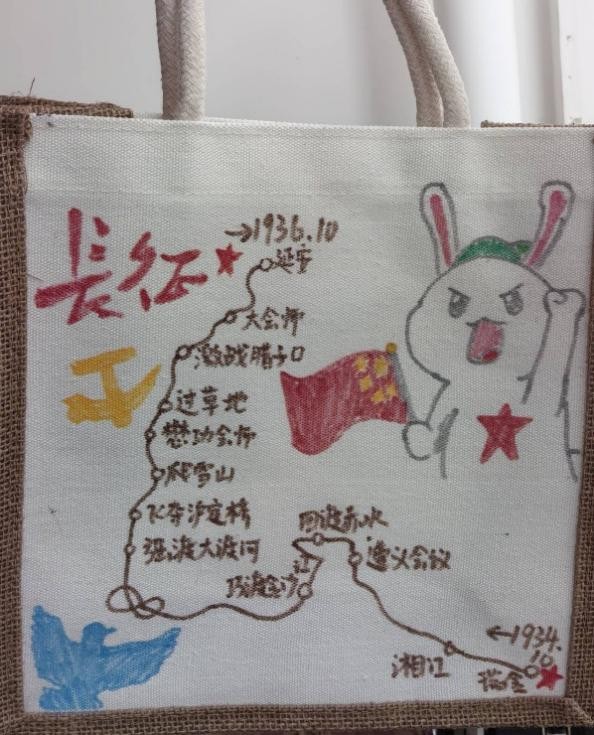 长征
→1936.10
延安
大会师
激战腊子口
过草地
懋功会师
爬雪山
飞夺泸定桥
强渡大渡河
四渡赤水
遵义会议
巧渡金沙
江
←1934.
10
湘江
瑞金